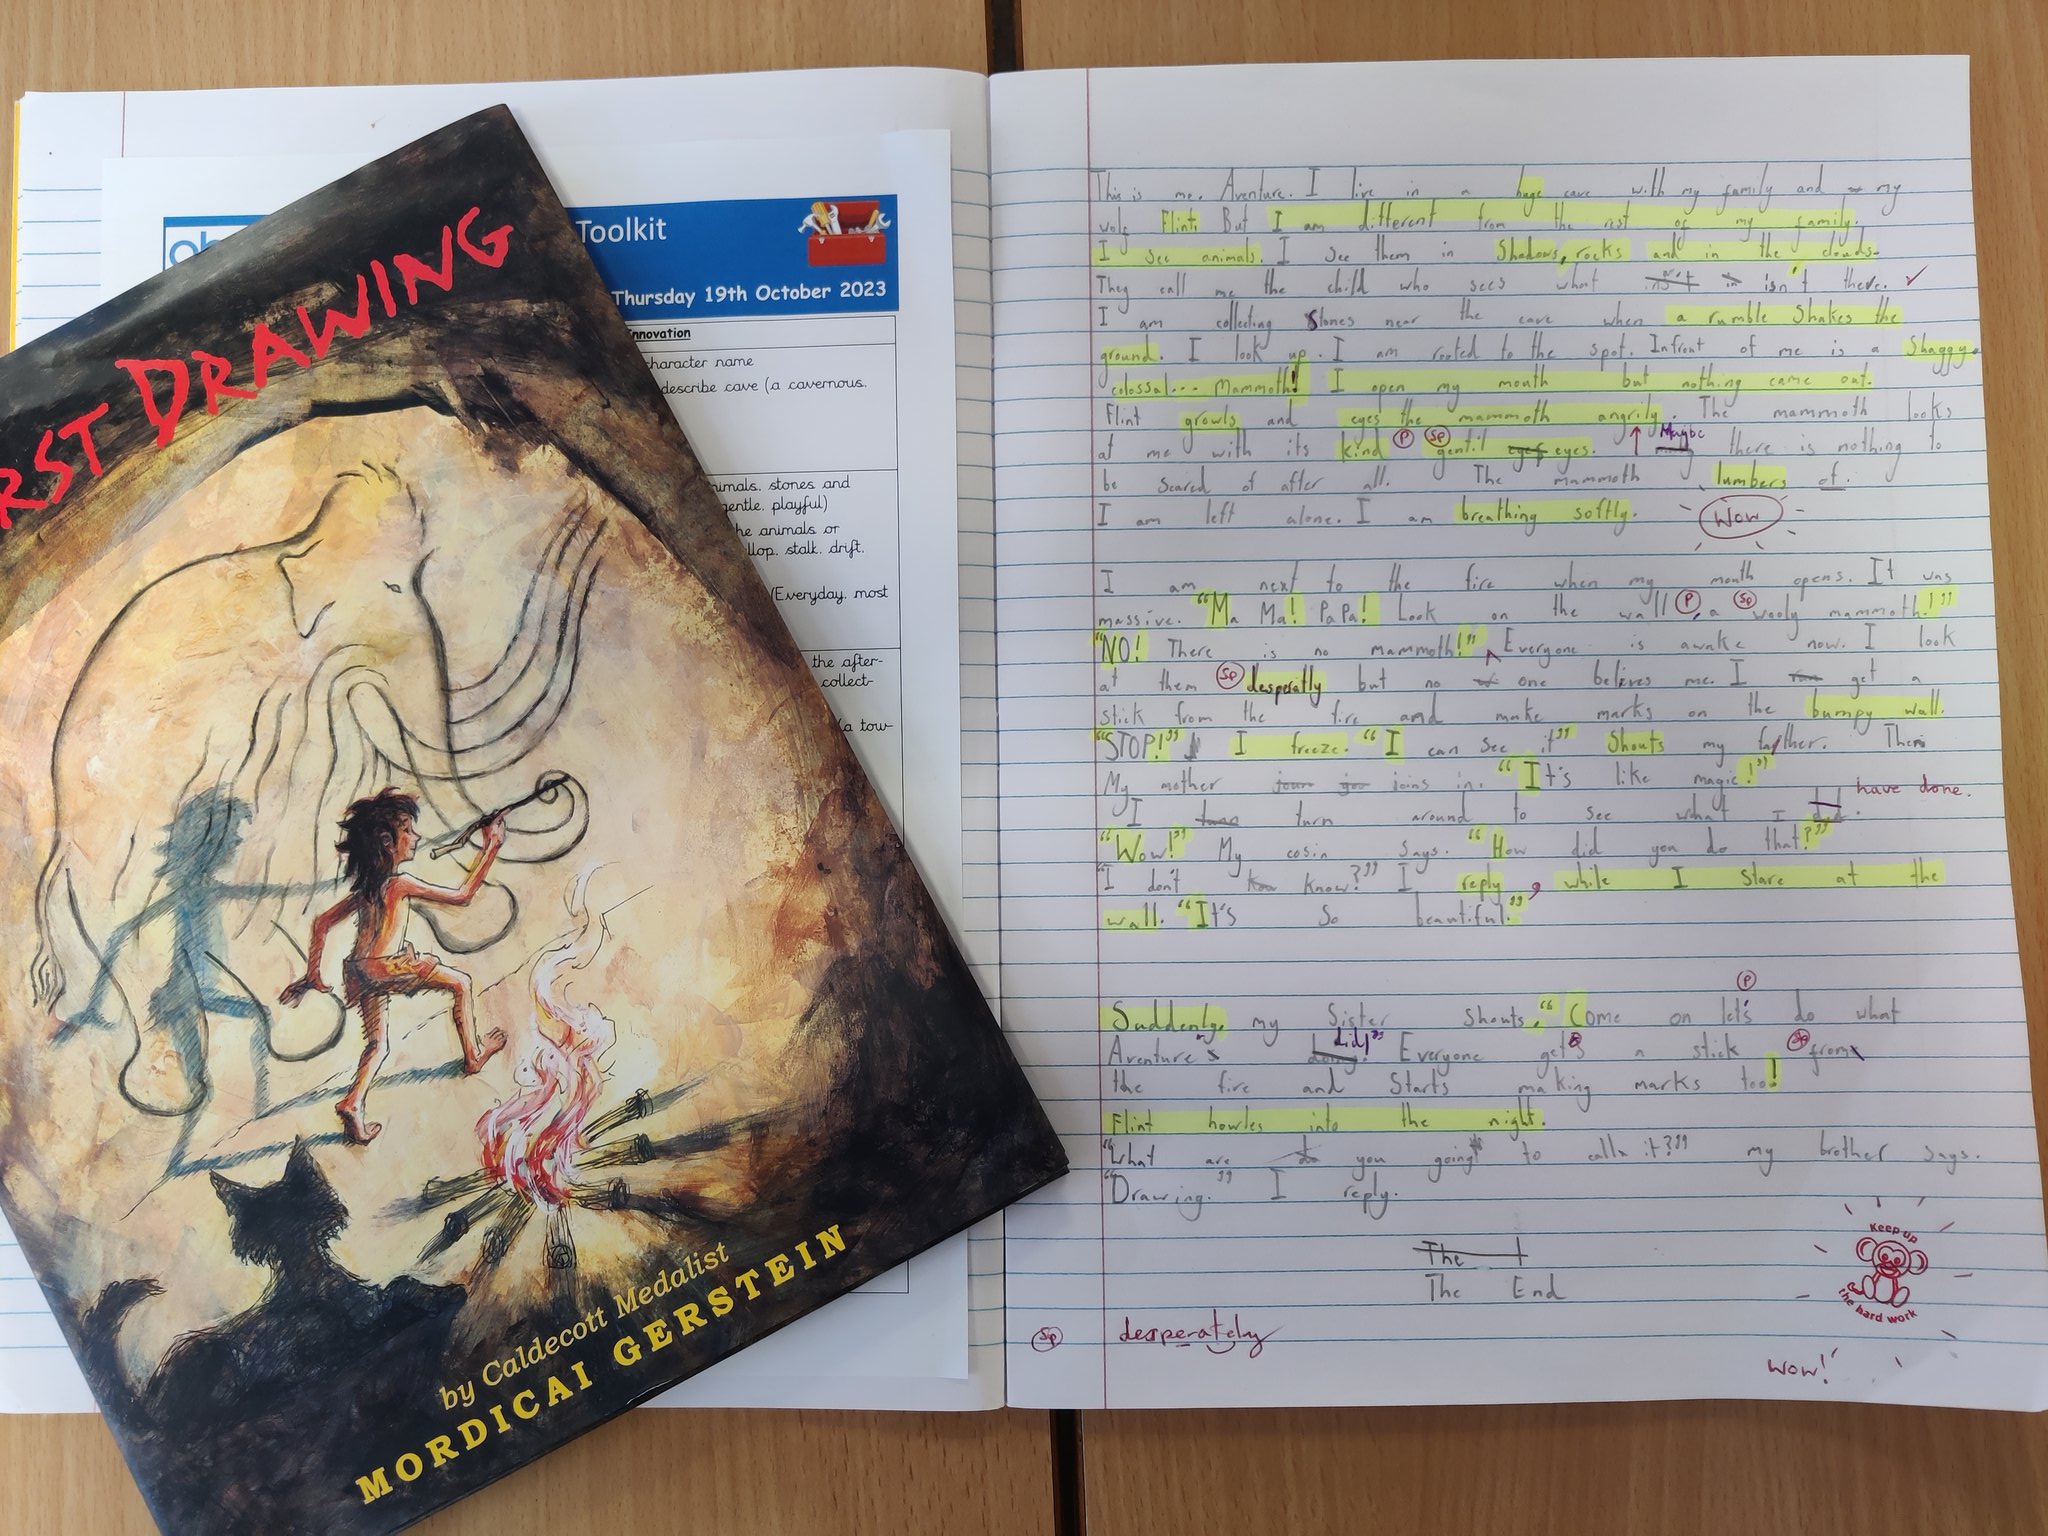 RST DRAWING
by Caldecott Medalist
MORDICAI GERSTEIN
Toolkit
Thursday 19th October 2023
Innovation
character name
describe cave (a cavernous,
animals, stones and
gentle, playful)
he animals or
llop, stalk, drift,
(Everyday, most
the after-
collect-
(a tow-
This is me. Aventure. I live in a huge cave with my family and my
wolf Flint. But I am different from the rest of my family.
I see animals. I see them in Shadows, rocks and in the clouds.
They call me the child who sees what isn't there. ✓
I am collecting Stones near the cave when a rumble Shakes the
ground. I look up. I am rooted to the spot. Infront of me is a Shaggy,
colossal... Mammoth! I open my mouth but nothing came out.
Flint growls and eyes the mammoth angrily. The mammoth looks
at me with its kind P Sp gentil eyes. Maybe there is nothing to
be scared of after all. The mammoth lumbers of.
I am left alone. I am breathing softly. Wow
I am next to the fire when my mouth opens. It was
massive. "Ma Ma! PaPa! Look on the wall P, a Sp wooly mammoth!"
"NO! There is no mammoth!" Everyone is awake now. I look
at them Sp desperatly but no one believes me. I get a
stick from the fire and make marks on the bumpy wall.
"STOP!" I freeze. "I can see it" Shouts my father. Then
My mother joins in. "It's like magic!"
I turn around to see what I did. have done.
"Wow!" My cosin says. "How did you do that?"
"I don't know?" I reply, while I Stare at the
wall. "It's so beautiful."
P
Suddenly, my Sister Shouts, "Come on let's do what
Aventure's did!" Everyone gets a stick Sp from
the fire and Starts making marks too!
Flint howles into the night.
"What are you going to call it?" my brother says.
"Drawing." I reply.
The
The End
Keep up
the hard work
Sp desperately
Wow!